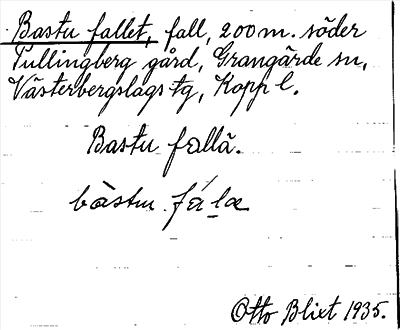 Bastu fallet, fall, 200 m. söder
Tullingberg gård, Grangärde sn,
Västerbergslags tg, Kopp l.
Bastu fallä.
bàstu fála
Otto Blixt 1935.